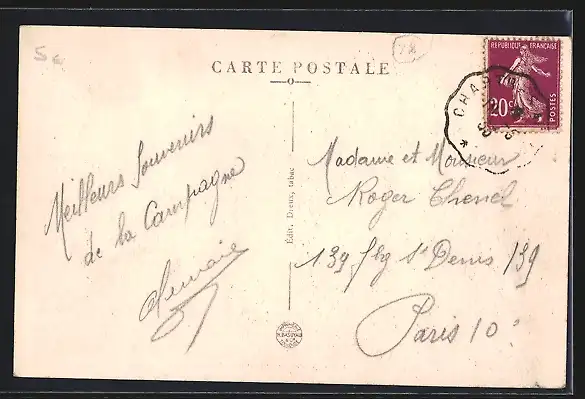 5e
78
CARTE POSTALE
REPUBLIQUE FRANÇAISE
20c
POSTES
CHAS
30
Meilleurs Souvenirs
de la Campagne
Lemaire
Édit. Dreux, tabac
Madame et Monsieur
Roger Chenel
139 fbg St Denis 139
Paris 10e